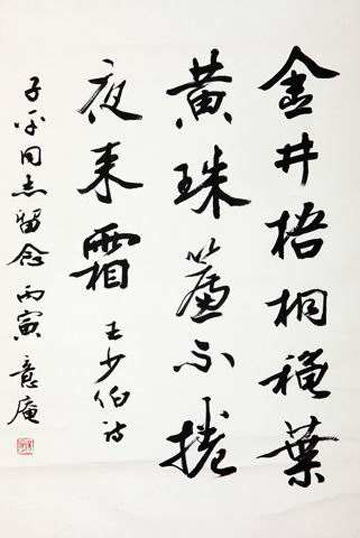 金井梧桐穐葉
黄珠簾不捲
夜来霜 王少伯诗
子平同志留念 丙寅 意庵